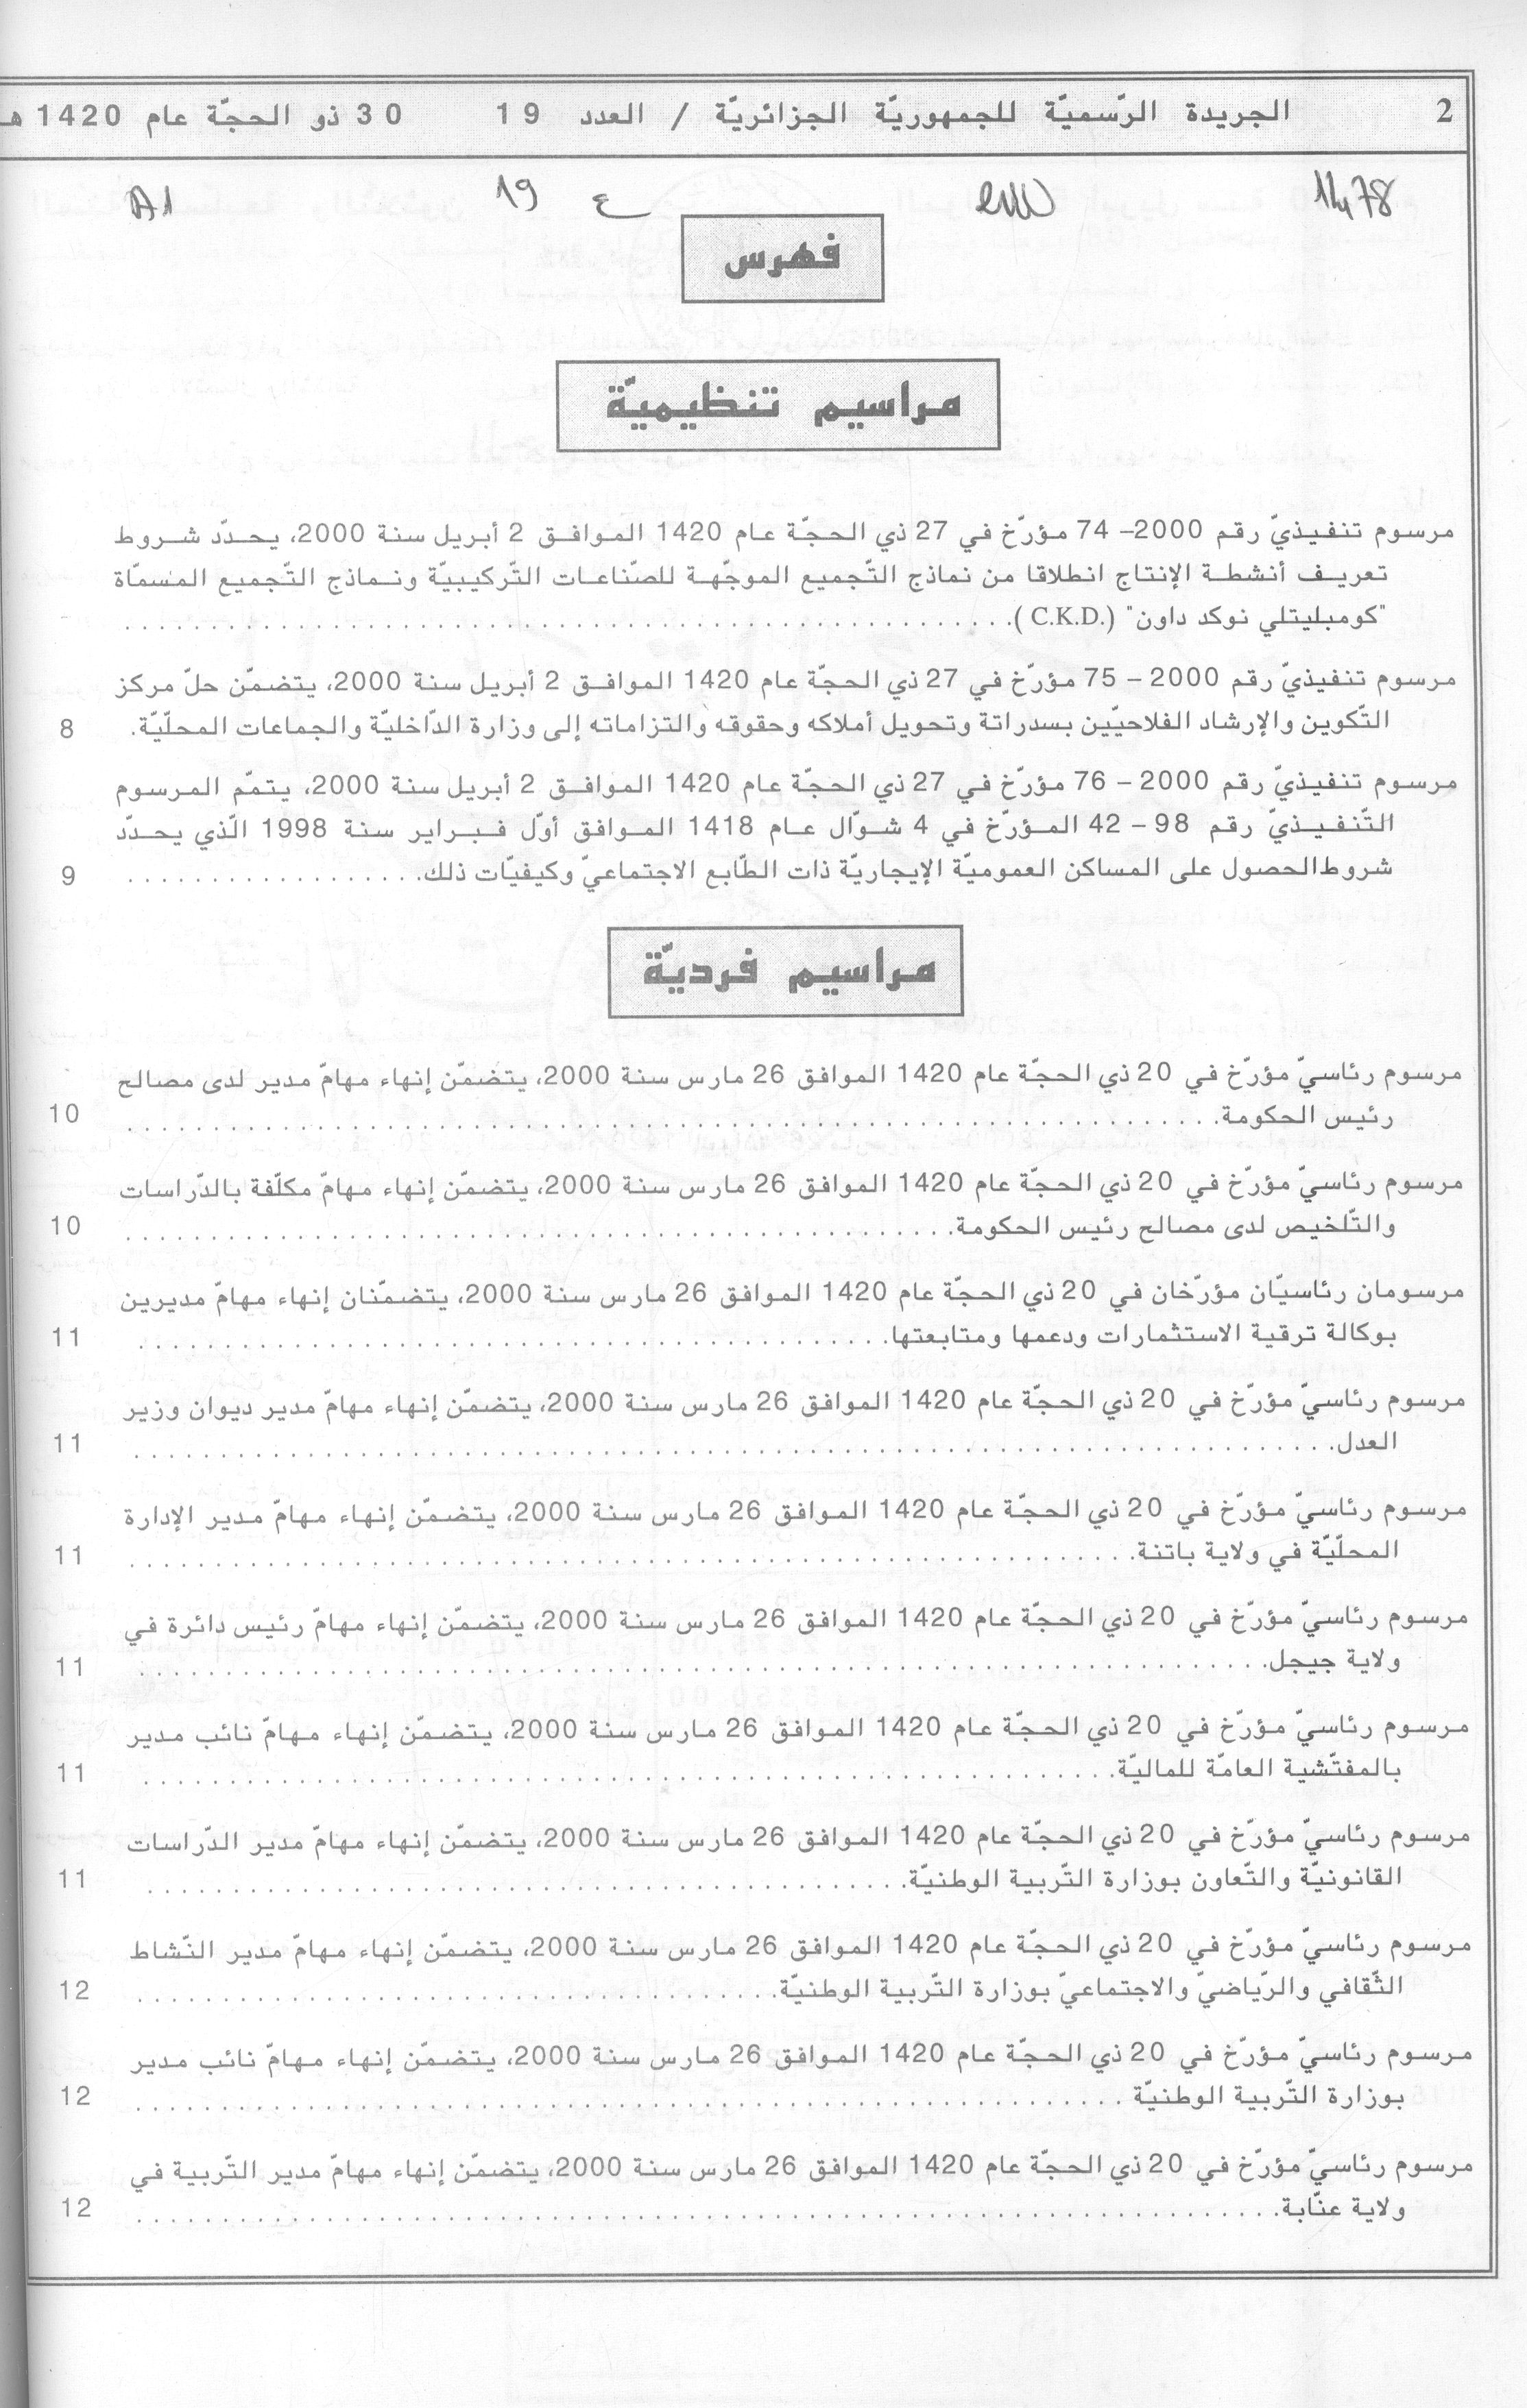 2 الجريدة الرّسميّة للجمهوريّة الجزائريّة / العدد 19 30 ذو الحجّة عام 1420 هـ
1478 2000 ع 19 A1
فهرس
مراسيم تنظيميّة
مرسوم تنفيذيّ رقم 2000– 74 مؤرّخ في 27 ذي الحجّة عام 1420 الموافق 2 أبريل سنة 2000، يحدّد شروط
تعريف أنشطة الإنتاج انطلاقا من نماذج التّجميع الموجّهة للصّناعات التّركيبيّة ونماذج التّجميع المسمّاة
"كومبليتلي نوكد داون" (C.K.D.).
مرسوم تنفيذيّ رقم 2000 – 75 مؤرّخ في 27 ذي الحجّة عام 1420 الموافق 2 أبريل سنة 2000، يتضمّن حلّ مركز
التّكوين والإرشاد الفلاحيّين بسدراتة وتحويل أملاكه وحقوقه والتزاماته إلى وزارة الدّاخليّة والجماعات المحلّيّة. 8
مرسوم تنفيذيّ رقم 2000 – 76 مؤرّخ في 27 ذي الحجّة عام 1420 الموافق 2 أبريل سنة 2000، يتمّم المرسوم
التّنفيذيّ رقم 98 – 42 المؤرّخ في 4 شوّال عام 1418 الموافق أوّل فبراير سنة 1998 الّذي يحدّد
شروط الحصول على المساكن العموميّة الإيجاريّة ذات الطّابع الاجتماعيّ وكيفيّات ذلك. 9
مراسيم فرديّة
مرسوم رئاسيّ مؤرّخ في 20 ذي الحجّة عام 1420 الموافق 26 مارس سنة 2000، يتضمّن إنهاء مهامّ مدير لدى مصالح
رئيس الحكومة. 10
مرسوم رئاسيّ مؤرّخ في 20 ذي الحجّة عام 1420 الموافق 26 مارس سنة 2000، يتضمّن إنهاء مهامّ مكلّفة بالدّراسات
والتّلخيص لدى مصالح رئيس الحكومة. 10
مرسومان رئاسيّان مؤرّخان في 20 ذي الحجّة عام 1420 الموافق 26 مارس سنة 2000، يتضمّنان إنهاء مهامّ مديرين
بوكالة ترقية الاستثمارات ودعمها ومتابعتها. 11
مرسوم رئاسيّ مؤرّخ في 20 ذي الحجّة عام 1420 الموافق 26 مارس سنة 2000، يتضمّن إنهاء مهامّ مدير ديوان وزير
العدل. 11
مرسوم رئاسيّ مؤرّخ في 20 ذي الحجّة عام 1420 الموافق 26 مارس سنة 2000، يتضمّن إنهاء مهامّ مدير الإدارة
المحلّيّة في ولاية باتنة. 11
مرسوم رئاسيّ مؤرّخ في 20 ذي الحجّة عام 1420 الموافق 26 مارس سنة 2000، يتضمّن إنهاء مهامّ رئيس دائرة في
ولاية جيجل. 11
مرسوم رئاسيّ مؤرّخ في 20 ذي الحجّة عام 1420 الموافق 26 مارس سنة 2000، يتضمّن إنهاء مهامّ نائب مدير
بالمفتّشية العامّة للماليّة. 11
مرسوم رئاسيّ مؤرّخ في 20 ذي الحجّة عام 1420 الموافق 26 مارس سنة 2000، يتضمّن إنهاء مهامّ مدير الدّراسات
القانونيّة والتّعاون بوزارة التّربية الوطنيّة. 11
مرسوم رئاسيّ مؤرّخ في 20 ذي الحجّة عام 1420 الموافق 26 مارس سنة 2000، يتضمّن إنهاء مهامّ مدير النّشاط
الثّقافي والرّياضيّ والاجتماعيّ بوزارة التّربية الوطنيّة. 12
مرسوم رئاسيّ مؤرّخ في 20 ذي الحجّة عام 1420 الموافق 26 مارس سنة 2000، يتضمّن إنهاء مهامّ نائب مدير
بوزارة التّربية الوطنيّة 12
مرسوم رئاسيّ مؤرّخ في 20 ذي الحجّة عام 1420 الموافق 26 مارس سنة 2000، يتضمّن إنهاء مهامّ مدير التّربية في
ولاية عنّابة. 12